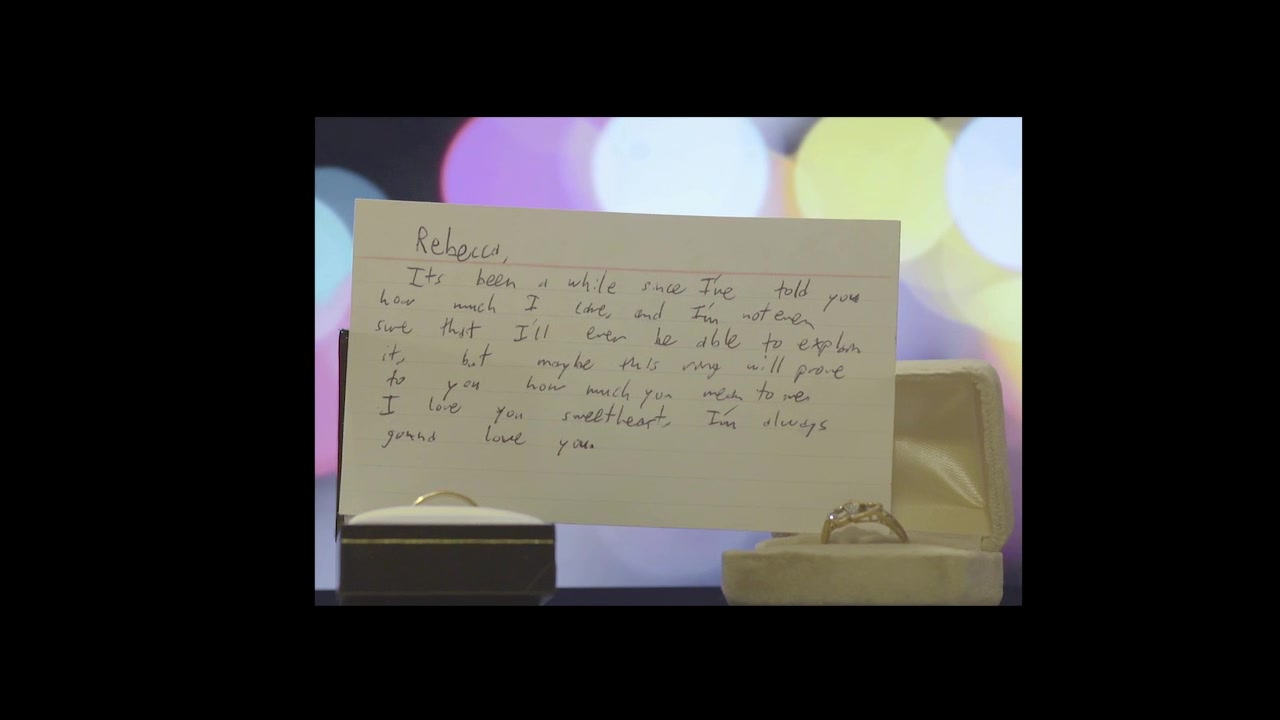 Rebecca,
Its been a while since I've told you
how much I care, and I'm not even
sure that I'll ever be able to explain
it, but maybe this ring will prove
to you how much you mean to me.
I love you sweetheart, I'm always
gonna love you.